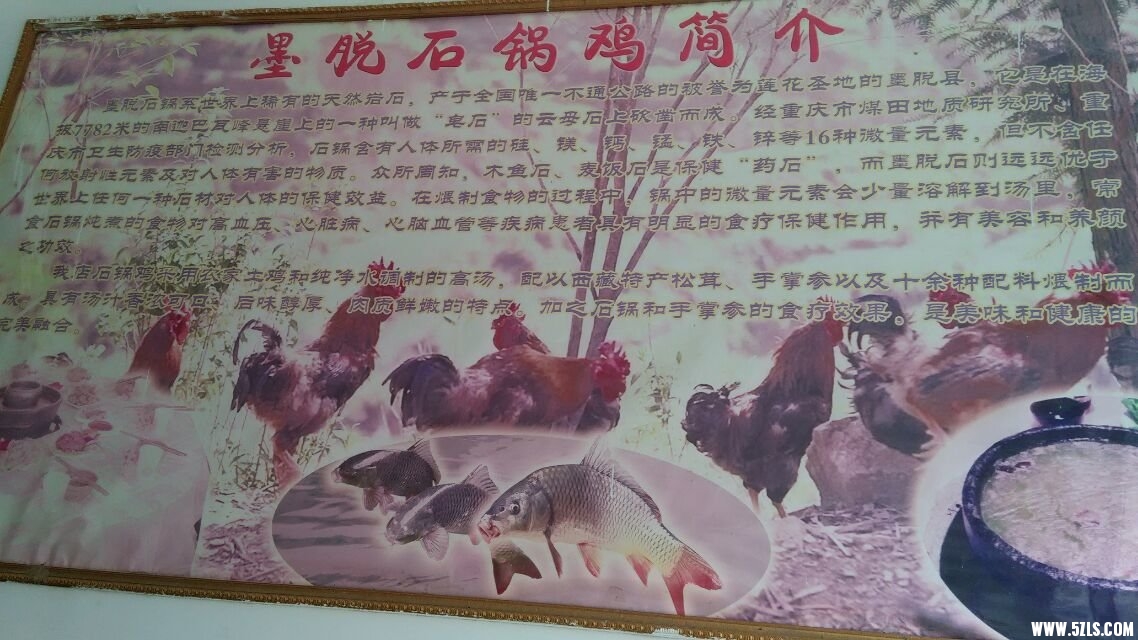 墨脱石锅鸡简介
墨脱石锅系世界上稀有的天然岩石，产于全国唯一不通公路的被誉为莲花圣地的墨脱县，它是在海
拔7782米的南迦巴瓦峰悬崖上的一种叫做“皂石”的云母石上砍凿而成。经重庆市煤田地质研究所、重
庆市卫生防疫部门检测分析，石锅含有人体所需的硅、镁、钙、锰、铁、锌等16种微量元素，但不含任
何放射性元素及对人体有害的物质。众所周知，木鱼石、麦饭石是保健“药石”，而墨脱石则远远优于
世界上任何一种石材对人体的保健效益。在煨制食物的过程中，锅中的微量元素会少量溶解到汤里，常
食石锅炖煮的食物对高血压、心脏病、心脑血管等疾病患者具有明显的食疗保健作用，并有美容和养颜
之功效。
我店石锅鸡采用农家土鸡和纯净水调制的高汤，配以西藏特产松茸、手掌参以及十余种配料煨制而
成，具有汤汁香浓可口、后味醇厚、肉质鲜嫩的特点。加之石锅和手掌参的食疗效果。是美味和健康的
完美融合。
WWW.5ZLS.COM